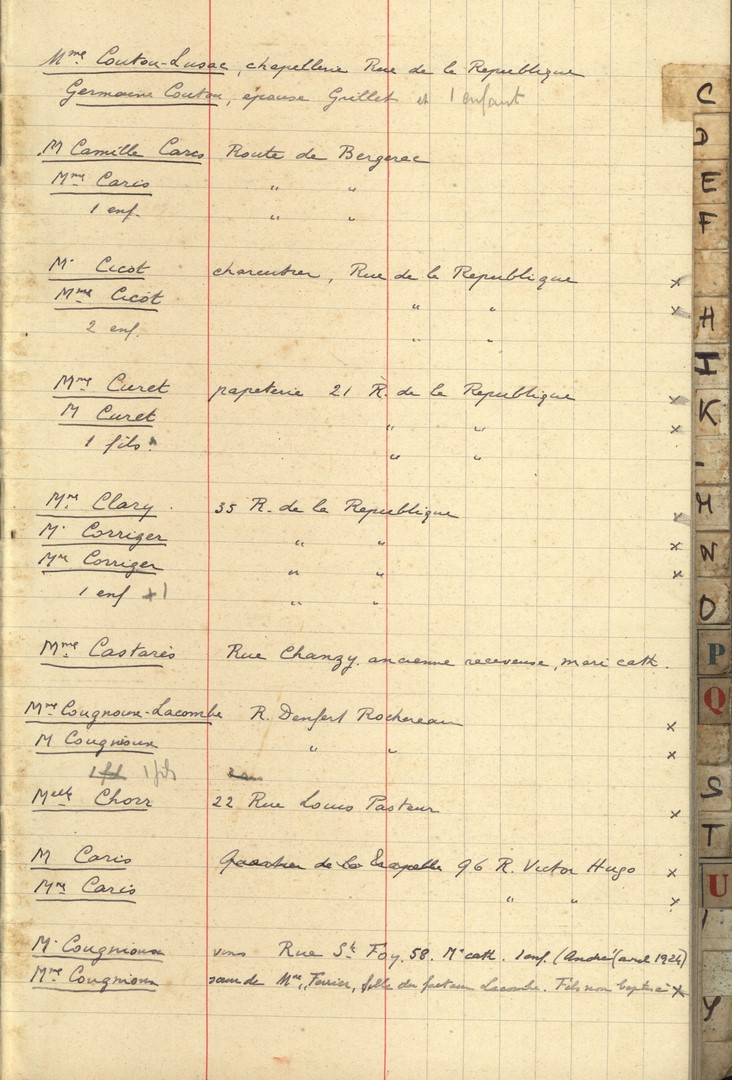 Mme Couton-Lusac, chapellerie Rue de la Republique
Germaine Couton, épouse Grillet et 1 enfant
M Camille Caris Route de Bergerac
Mme Caris " "
1 enf. " "
M. Cicot charcutier, Rue de la Republique x
Mme Cicot " " x
2 enf. " "
Mme Curet papeterie 21 R. de la Republique x
M Curet " " x
1 fils. " "
Mme Clary. 35 R. de la Republique x
M. Corriger " " x
Mme Corriger " " x
1 enf +1 " "
Mme Castarès Rue Chanzy. ancienne receveuse, mari cath.
Mme Cougnoux-Lacombe R. Denfert Rochereau x
M Cougnioux " " x
1 fils
Melle Chorr 22 Rue Louis Pasteur x
M Caris Quartier de la 96 R. Victor Hugo x
Mme Caris " " x
M. Cougnioux vins Rue Ste Foy. 58. Mr cath. 1 enf. (André (avril 1924)
Mme Cougnioux soeur de Mme Ferrier, fille du facteur Lacombe. Fils non baptisé x
C
D
E
F
H
I
K
M
N
O
P
Q
S
T
U
Y